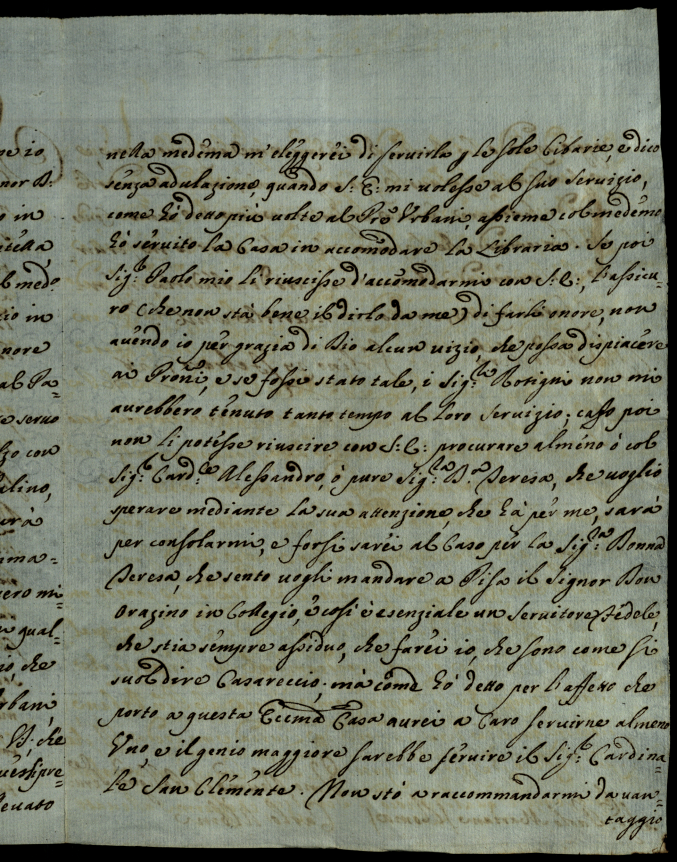 ne io
nor D:
o in
b medo
tio in
nore
al Pa=
e servo
lzo con
alino,
ero mi=
n qual=
io, che
rbani,
V: che
levato
nella medema m'eleggerei di servirla p le sole Cibarie, e dico
senza adulazione, quando S: E: mi volesse al suo servizio,
come hò detto più volte al Pre Urbani, assieme col medemo
hò servito la Casa in accomodare la Libraria. Se poi
Sig:r Paolo mio li riuscisse d'accomodarmi con S: E:, l'assicu=
ro (che non stà bene il dirlo da me) di farli onore, non
avendo io per grazia di Dio alcun vizio, che possa dispiacere
ai Proni, e se fossi stato tale, i Sig:ri Botigni non mi
aurebbero tenuto tanto tempo al loro servizio; caso poi
non li potesse riuscire con S: E: procurare almeno ò col
Sig:r Card:le Alessandro, ò pure Sig:ra D:a Teresa, che voglio
sperare mediante la sua attenzione, che hà per me, sarà
per consolarmi, e forsi sarei al Caso per la Sig:ra Donna
Teresa, che sento vogli mandare a Pisa il Signor Don
Orazino in Collegio, e così è esenziale un servitore fedele,
che stia sempre assiduo, che farei io, che sono come si
suol dire Casareccio; mà come hò detto per l'affetto che
porto a questa Eccma Casa aurei a Caro servirne almeno
Uno e il genio maggiore sarebbe servire il Sig:r Cardina=
le San Clemente. Non stò a raccommandarmi da van=
taggio